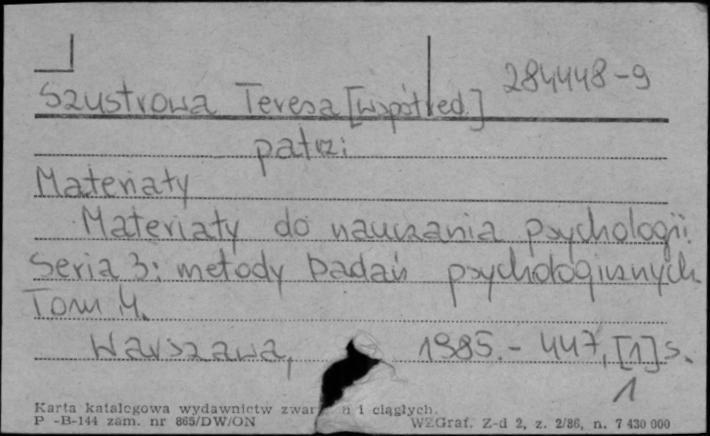 284448-9
Szustrowa Teresa [współred.]
patrz:
Materiały
Materiały do nauczania psychologii.
Seria 3: metody badań psychologicznych
Tom 4.
Warszawa, 1985. - 447, [1] s.
1
Karta katalogowa wydawnictw zwar n i ciągłych.
P -B-144 zam. nr 865/DW/ON WZGraf. Z-d 2, z. 2/86, n. 7 430 000